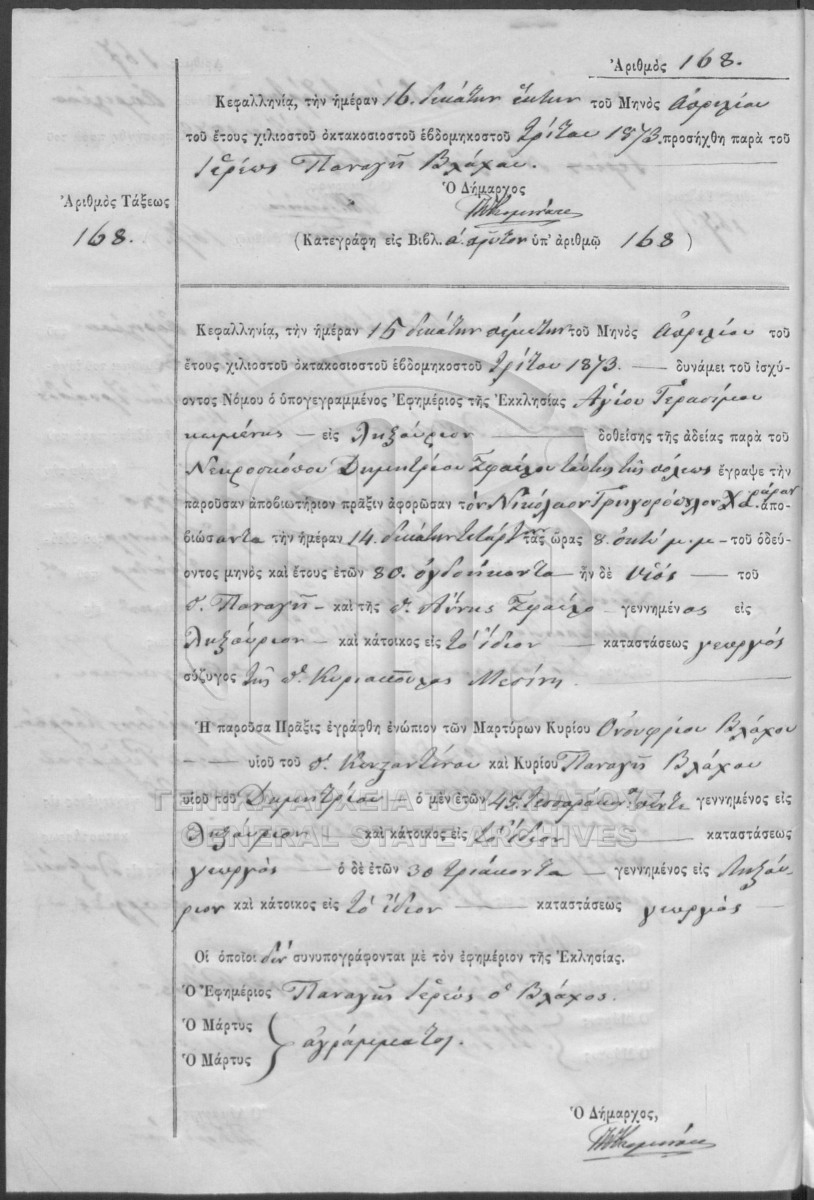 Ἀριθμὸς 168.
Κεφαλληνίᾳ, τὴν ἡμέραν 16. δεκάτην ἕκτην τοῦ Μηνὸς Ἀπριλίου
τοῦ ἔτους χιλιοστοῦ ὀκτακοσιοστοῦ ἑβδομηκοστοῦ τρίτου 1873. προσήχθη παρὰ τοῦ
Ἱερέως Παναγῆ Βλάχου.
Ὁ Δήμαρχος
Ἀριθμὸς Τάξεως
168.
(Κατεγράφη εἰς Βιβλ. α. πρῶτον ὑπ' ἀριθμῷ 168)
Κεφαλληνίᾳ, τὴν ἡμέραν 15 δεκάτην πέμπτην τοῦ Μηνὸς Ἀπριλίου τοῦ
ἔτους χιλιοστοῦ ὀκτακοσιοστοῦ ἑβδομηκοστοῦ τρίτου 1873. — δυνάμει τοῦ ἰσχύ-
οντος Νόμου ὁ ὑπογεγραμμένος Ἐφημέριος τῆς Ἐκκλησίας Ἁγίου Γερασίμου
κειμένης — εἰς Ληξούριον — δοθείσης τῆς ἀδείας παρὰ τοῦ
Νεκροσκόπου Δημητρίου Σφαέλου ταύτης τῆς πόλεως ἔγραψε τὴν
παροῦσαν ἀποβιωτήριον πρᾶξιν ἀφορῶσαν τὸν Νικόλαον Γρηγορόπουλον ἀπο-
βιώσαντα τὴν ἡμέραν 14. δεκάτην τετάρτην τὰς ὥρας 8. ὀκτὼ μ.μ — τοῦ ὁδεύ-
οντος μηνὸς καὶ ἔτους ἐτῶν 80. ὀγδοήκοντα — ἦν δὲ υἱός — τοῦ
π. Παναγῆ — καὶ τῆς π. Ἄννης Σφαέλο — γεννημένος εἰς
Ληξούριον — καὶ κάτοικος εἰς τὸ ἴδιον — καταστάσεως γεωργός
σύζυγος τῆς π. Κυριακούλας Μεσίνη.
Ἡ παροῦσα Πρᾶξις ἐγράφθη ἐνώπιον τῶν Μαρτύρων Κυρίου Ὀνουφρίου Βλάχου
— υἱοῦ τοῦ π. Κωνσαντίνου καὶ Κυρίου Παναγῆ Βλάχου
υἱοῦ τοῦ Δημητρίου ὁ μὲν ἐτῶν 45. τεσσαρακ. πέντε γεννημένος εἰς
Ληξούριον — καὶ κάτοικος εἰς τὸ ἴδιον — καταστάσεως
γεωργός — ὁ δὲ ἐτῶν 30 τριάκοντα — γεννημένος εἰς Ληξού-
ριον καὶ κάτοικος εἰς τὸ ἴδιον — καταστάσεως γεωργός —
Οἱ ὁποῖοι δὲν συνυπογράφονται μὲ τὸν ἐφημέριον τῆς Ἐκλησίας.
Ὁ Ἐφημέριος Παναγῆς Ἱερεὺς ὁ Βλάχος.
Ὁ Μάρτυς
Ὁ Μάρτυς
ἀγράμματοι.
Ὁ Δήμαρχος,
ΓΕΝΙΚΑ ΑΡΧΕΙΑ ΤΟΥ ΚΡΑΤΟΥΣ
GENERAL STATE ARCHIVES